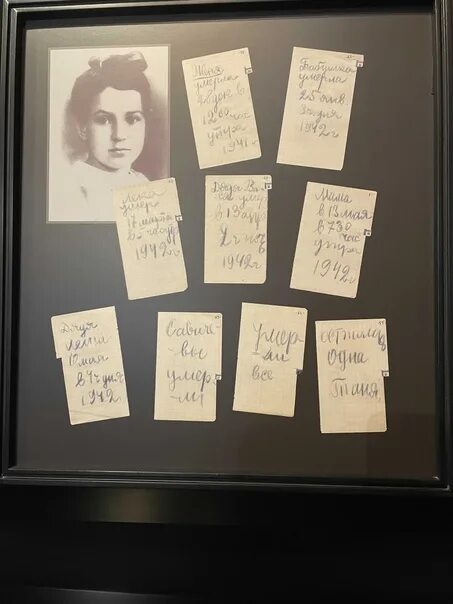 Женя
умерла
28 дек в
12 00 час
утра
1941 г
Бабушка
умерла
25 янв.
3 ч дня
1942 г
Лека
умер
17 марта
в 5 час утр
1942 г
Дядя Ва
ся умер
в 13 апр
2 ч ноч
1942 г
Мама
в 13 мая
в 7 30
час
утра
1942 г
Дядя
Леша
10 мая
в 4 ч дня
1942 г
Савиче-
вы
умер-
ли
Умер-
ли
все
Осталась
одна
Таня